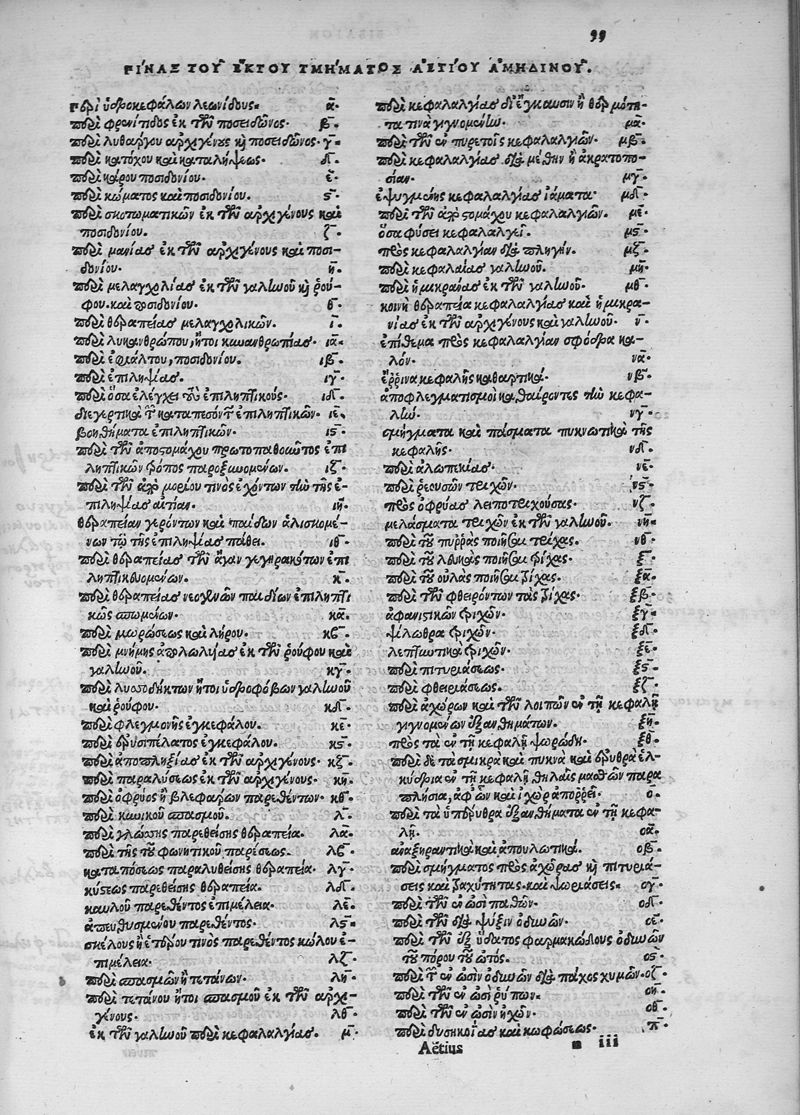 99
ΠΙΝΑΞ ΤΟΥ ΕΚΤΟΥ ΤΜΗΜΑΤΟΣ ΑΕΤΙΟΥ ΑΜΗΔΙΝΟΥ.
Περὶ ὑδροκεφάλων λεωνίδους. α.
περὶ φρενίτιδος ἐκ τῶν ποσειδῶνος. β.
περὶ λυθαργου αρχιγένης κὶ ποσειδῶνος. γ.
περὶ κατόχου καὶ καταλήψεως. δ.
περὶ κάρου ποσιδονίου. ε.
περὶ κώματος καὶ ποσιδονίου. ϛ.
περὶ σκοτωματικῶν ἐκ τῶν αρχιγένους καὶ
ποσιδονίου. ζ.
περὶ μανίας ἐκ τῶν αρχιγένους καὶ ποσι-
δονίου. η.
περὶ μελαγχολίας ἐκ τῶν γαλωοῦ κὶ ῥού-
φου. καὶ ποσιδονίου. θ.
περὶ θεραπείας μελαγχολικῶν. ι.
περὶ λυκανθρώπου, ἤτοι κωανθρωπίας. ια.
περὶ ἐφιάλτου, ποσιδονίου. ιβ.
περὶ ἐπιληψίας. ιγ.
περὶ ὅσα ἐλέγχει τοὺς ἐπιληπτικούς. ιδ.
διεγερτικὰ τῶν καταπεσόντων ἐπιληπτικῶν. ιε.
βοηθήματα ἐπιληπτικῶν. ιϛ.
περὶ τῶν ἀπὸ στομάχου πρωτοπαθοιῶτος ἐπι
ληπτικῶν τρόπος παροξυσμένων. ιζ.
περὶ τῶν ἀπὸ μορίου τινὸς ἐχόντων τὴν τῆς ἐ-
πιληψίας αἰτίαν. ιη.
θεραπείαν γερόντων καὶ παίδων ἁλισκομέ-
νων τῷ τῆς ἐπιληψίας πάθει. ιθ.
περὶ θεραπείας τῶν ἄγαν γεγηρακότων ἐπι
ληπτικευομένων. κ.
περὶ θεραπείας νεογνῶν παιδίων ἐπιληπτι
κῶς σπωμένων. κα.
περὶ μωρώσεως καὶ λήρου. κβ.
περὶ μνήμης ἀπολωλυίας ἐκ τῶν ῥούφου καὶ
γαλωοῦ. κγ.
περὶ λυσσοδήκτων ἤτοι ὑδροφόβων γαλωοῦ
καὶ ῥούφου. κδ.
περὶ φλεγμονῆς ἐγκεφάλου. κε.
περὶ ἐρυσιπέλατος ἐγκεφάλου. κϛ.
περὶ ἀποπληξίας ἐκ τῶν αρχιγένους. κζ.
περὶ παραλύσεως ἐκ τῶν αρχιγένους. κη.
περὶ ὀφρύος ἢ βλεφάρων παρεθέντων. κθ.
περὶ κωικοῦ σπασμοῦ. λ.
περὶ γλώσσης παρεθείσης θεραπεία. λα.
περὶ τῆς τοῦ φωνητικοῦ παρέσεως. λβ.
καταπόσεως παραλυθείσης θεραπεία. λγ.
κύστεως παρεθείσης θεραπεία. λδ.
καυλοῦ παρεθέντος ἐπιμέλεια. λε.
ἀπευθυσμένου παρεθέντος. λϛ.
σκέλους ἢ ἑτέρου τινος παρεθέντος κώλου ἐ-
πιμέλεια. λζ.
περὶ σπασμῶν ἢ τετάνων. λη.
περὶ τετάνου ἤτοι σπασμοῦ ἐκ τῶν αρχι-
γένους. λθ.
ἐκ τῶν γαλωοῦ περὶ κεφαλαλγίας. μ.
περὶ κεφαλαλγίας δι' ἔγκαυσιν ἢ θερμότη-
τα τινὰ γιγνομένην. μα.
περὶ τῶν ἐν πυρετοῖς κεφαλαλγιῶν. μβ.
περὶ κεφαλαλγίας διὰ μέθην ἢ ἀκρατοπο-
σίαν. μγ.
ἐψυγμένης κεφαλαλγίας ἰάματα. μδ.
περὶ τῶν ἀπὸ στομάχου κεφαλαλγιῶν. με.
ὅσα φύσει κεφαλαλγεῖ. μϛ.
πρὸς κεφαλαλγίαν διὰ πληγήν. μζ.
περὶ κεφαλαίας γαλωοῦ. μη.
περὶ ἡμικρανίας ἐκ τῶν γαλωοῦ. μθ.
κοινὴ θεραπεία κεφαλαλγίας καὶ ἡμικρα-
νίας ἐκ τῶν αρχιγένους καὶ γαλωοῦ. ν.
ἐπίθεμα πρὸς κεφαλαλγίαν σφόδρα κα-
λόν. να.
ἔρρινα κεφαλῆς καθαρτικά. νβ.
ἀποφλεγματισμοὶ καθαίροντες τὴν κεφα-
λήν. νγ.
σμήγματα καὶ πάσματα πυκνωτικὰ τῆς
κεφαλῆς. νδ.
περὶ ἀλωπεκίας. νε.
περὶ ῥεουσῶν τριχῶν. νϛ.
πρὸς ὀφρύας λειποτριχούσας. νζ.
μελάσματα τριχῶν ἐκ τῶν γαλωοῦ. νη.
περὶ τοῦ πυρρὰς ποιῆσαι τρίχας. νθ.
περὶ τοῦ λευκὰς ποιῆσαι τρίχας. ξ.
περὶ τοῦ οὔλας ποιῆσαι τρίχας. ξα.
περὶ τῶν φθειρόντων τὰς τρίχας. ξβ.
ἀφανιστικῶν τριχῶν. ξγ.
ψίλωθρα τριχῶν. ξδ.
λεπτωτικὰ τριχῶν. ξε.
περὶ πιτυριάσεως. ξϛ.
περὶ φθειριάσεως. ξζ.
περὶ ἀχώρων καὶ τῶν λοιπῶν ἐν τῇ κεφαλῇ
γιγνομένων ἐξανθημάτων. ξη.
πρὸς τὰ ἐν τῇ κεφαλῇ ψωρώδη. ξθ.
περὶ δὲ τὰ σμικρὰ καὶ πυκνὰ καὶ ἐρυθρὰ ἑλ-
κύδρια ἐν τῇ κεφαλῇ θηλαῖς μασθῶν παρα
πλήσια, ἀφ' ὧν καὶ ἰχὼρ ἀπορρεῖ. ο.
περὶ τὰ ὑπέρυθρα ἐξανθήματα ἐν τῇ κεφα-
λῇ. οα.
ἀναξηραντικὰ καὶ ἀπουλωτικά. οβ.
περὶ σμήγματος πρὸς ἀχῶρας κὶ πιτυριά-
σεις καὶ τραχύτητας. καὶ ψωριάσεις. ογ.
περὶ τῶν ἐν ὠσὶ παθῶν. οδ.
περὶ τῶν διὰ ψύξιν ὀδυνῶν. οε.
περὶ τῶν ἐξ ὕδατος φαρμακώδους ὀδυνῶν
τοῦ πόρου τοῦ ὠτός. οϛ.
περὶ τῶν ἐν ὠσὶν ὀδυνῶν διὰ πάχος χυμῶν. οζ.
περὶ τῶν ἐν ὠσὶ ῥύπων. οη.
περὶ τῶν ἐν ὠσὶν ἤχων. οθ.
περὶ δυσηκοΐας καὶ κωφώσεως. π.
Aëtius iii